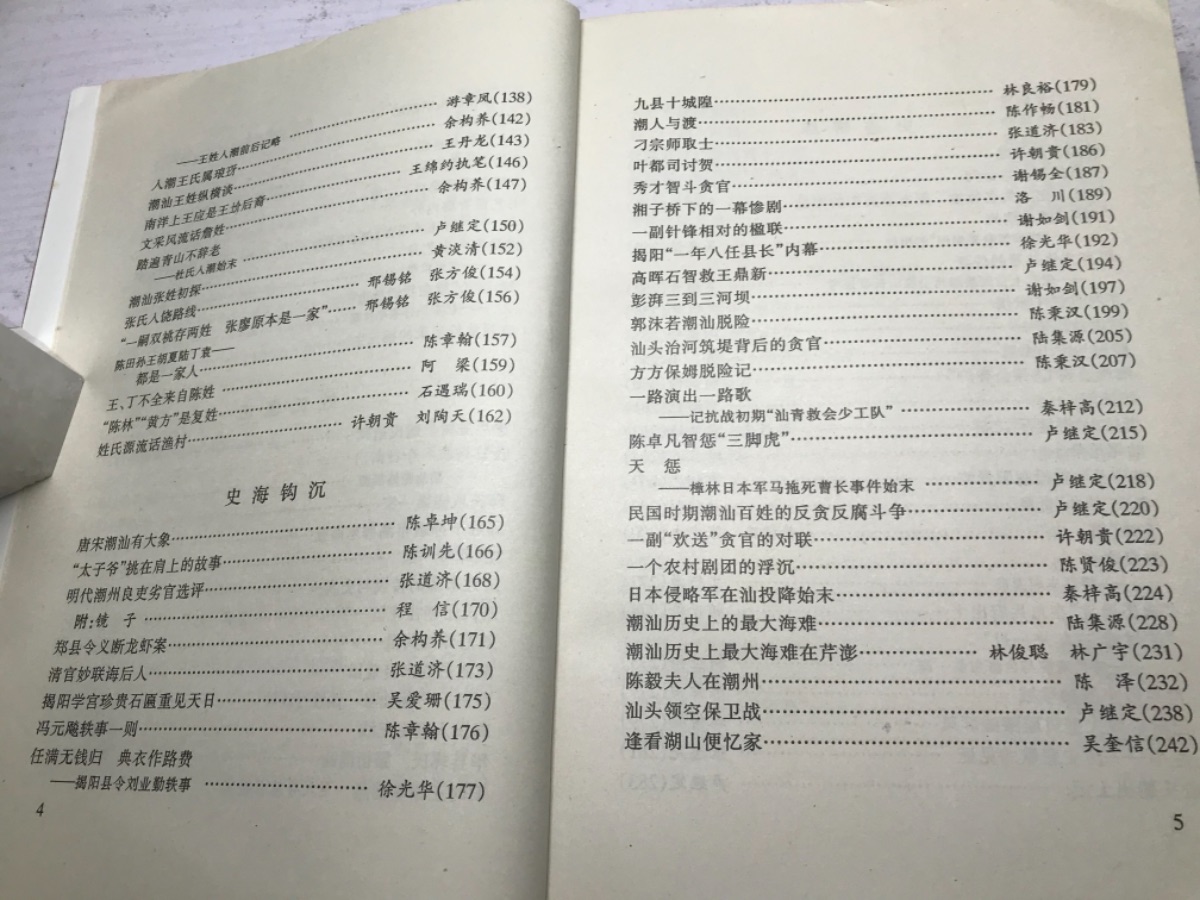 ——王姓入潮前后记略 …… 游章凤(138)
入潮王氏属琅玡 …… 余构养(142)
潮汕王姓纵横谈 …… 王丹龙(143)
南洋上王应是王 后裔 …… 王绵约执笔(146)
文采风流话詹姓 …… 余构养(147)
踏遍青山不辞老
——杜氏入潮始末 …… 卢继定(150)
潮汕张姓初探 …… 黄淡清(152)
张氏入饶路线 …… 邢锡铭 张方俊(154)
“一嗣双祧存两姓 张廖原本是一家” …… 邢锡铭 张方俊(156)
陈田孙王胡夏陆丁袁——
都是一家人 …… 陈章翰(157)
王、丁不全来自陈姓 …… 阿 梁(159)
“陈林”“黄方”是复姓 …… 石遇瑞(160)
姓氏源流话渔村 …… 许朝贵 刘陶天(162)
史海钩沉
唐宋潮汕有大象 …… 陈卓坤(165)
“太子爷”挑在肩上的故事 …… 陈训先(166)
明代潮州良吏劣官选评 …… 张道济(168)
附:铳 子 …… 程 信(170)
郑县令义断龙虾案 …… 余构养(171)
清官妙联诲后人 …… 张道济(173)
揭阳学宫珍贵石匾重见天日 …… 吴爱珊(175)
冯元飚轶事一则 …… 陈章翰(176)
任满无钱归 典衣作路费
——揭阳县令刘业勤轶事 …… 徐光华(177)
4
九县十城隍 …… 林良裕(179)
潮人与渡 …… 陈作畅(181)
刁宗师取士 …… 张道济(183)
叶都司讨贺 …… 许朝贵(186)
秀才智斗贪官 …… 谢锡全(187)
湘子桥下的一幕惨剧 …… 洛 川(189)
一副针锋相对的楹联 …… 谢如剑(191)
揭阳“一年八任县长”内幕 …… 徐光华(192)
高晖石智救王鼎新 …… 卢继定(194)
彭湃三到三河坝 …… 谢如剑(197)
郭沫若潮汕脱险 …… 陈秉汉(199)
汕头治河筑堤背后的贪官 …… 陆集源(205)
方方保姆脱险记 …… 陈秉汉(207)
一路演出一路歌
——记抗战初期“汕青救会少工队” …… 秦梓高(212)
陈卓凡智惩“三脚虎” …… 卢继定(215)
天 惩
——樟林日本军马拖死曹长事件始末 …… 卢继定(218)
民国时期潮汕百姓的反贪反腐斗争 …… 卢继定(220)
一副“欢送”贪官的对联 …… 许朝贵(222)
一个农村剧团的浮沉 …… 陈贤俊(223)
日本侵略军在汕投降始末 …… 秦梓高(224)
潮汕历史上的最大海难 …… 陆集源(228)
潮汕历史上最大海难在芹澎 …… 林俊聪 林广宇(231)
陈毅夫人在潮州 …… 陈 泽(232)
汕头领空保卫战 …… 卢继定(238)
逢看湖山便忆家 …… 吴奎信(242)
5